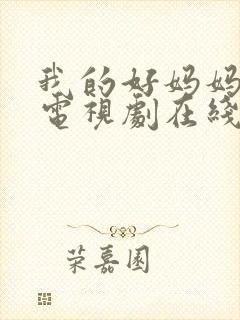 我的好妈妈
電視劇在綫
荣嘉園